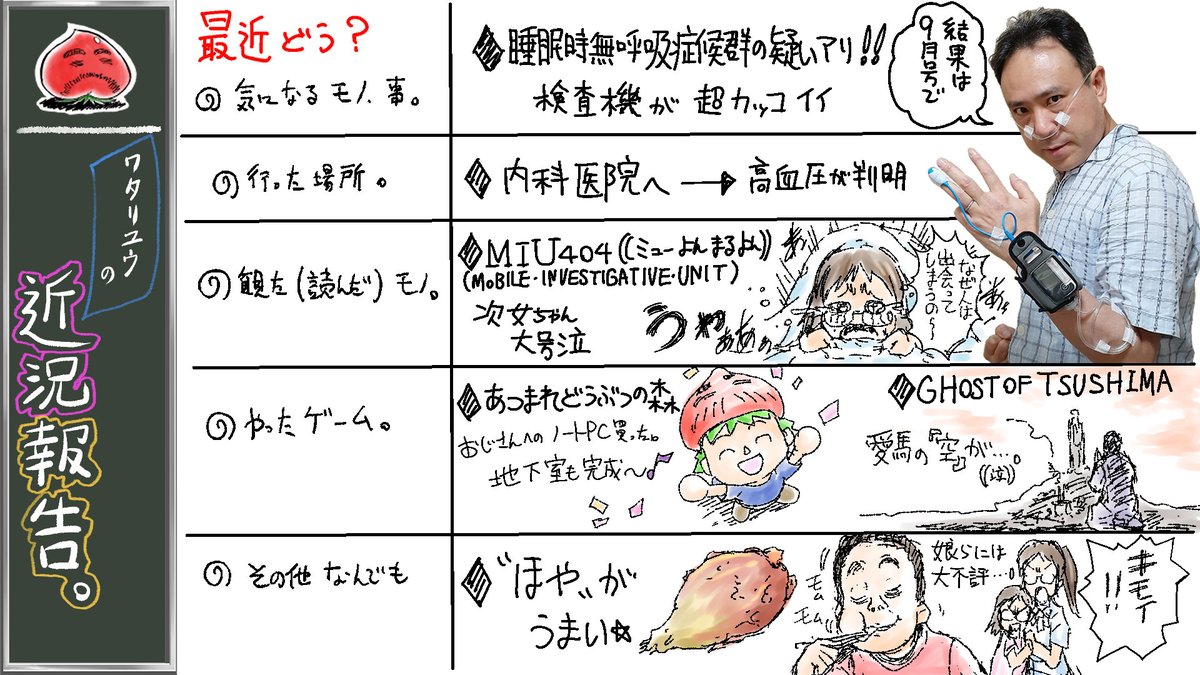 ワタリユウの
近況報告。
最近どう?
気になるモノ、事。
睡眠時無呼吸症候群の疑いアリ!!
検査機が超カッコイイ
結果は
9月号で
行った場所。
内科医院へ→高血圧が判明
観た(読んだ)モノ。
MIU404((ミューよんまるよん))
(MOBILE・INVESTIGATIVE・UNIT)
次女ちゃん
大号泣
うゃぁあぁ
なぜ人は
出会って
しまうの〜
やったゲーム。
あつまれどうぶつの森
おじさんへのノートPC買った。
地下室も完成〜♪
GHOST OF TSUSHIMA
愛馬の『空』が…。
((泣))
その他なんでも
〝ほや〟が
うまい☆
モム
モム
娘らには
大不評…。
キモイ!!